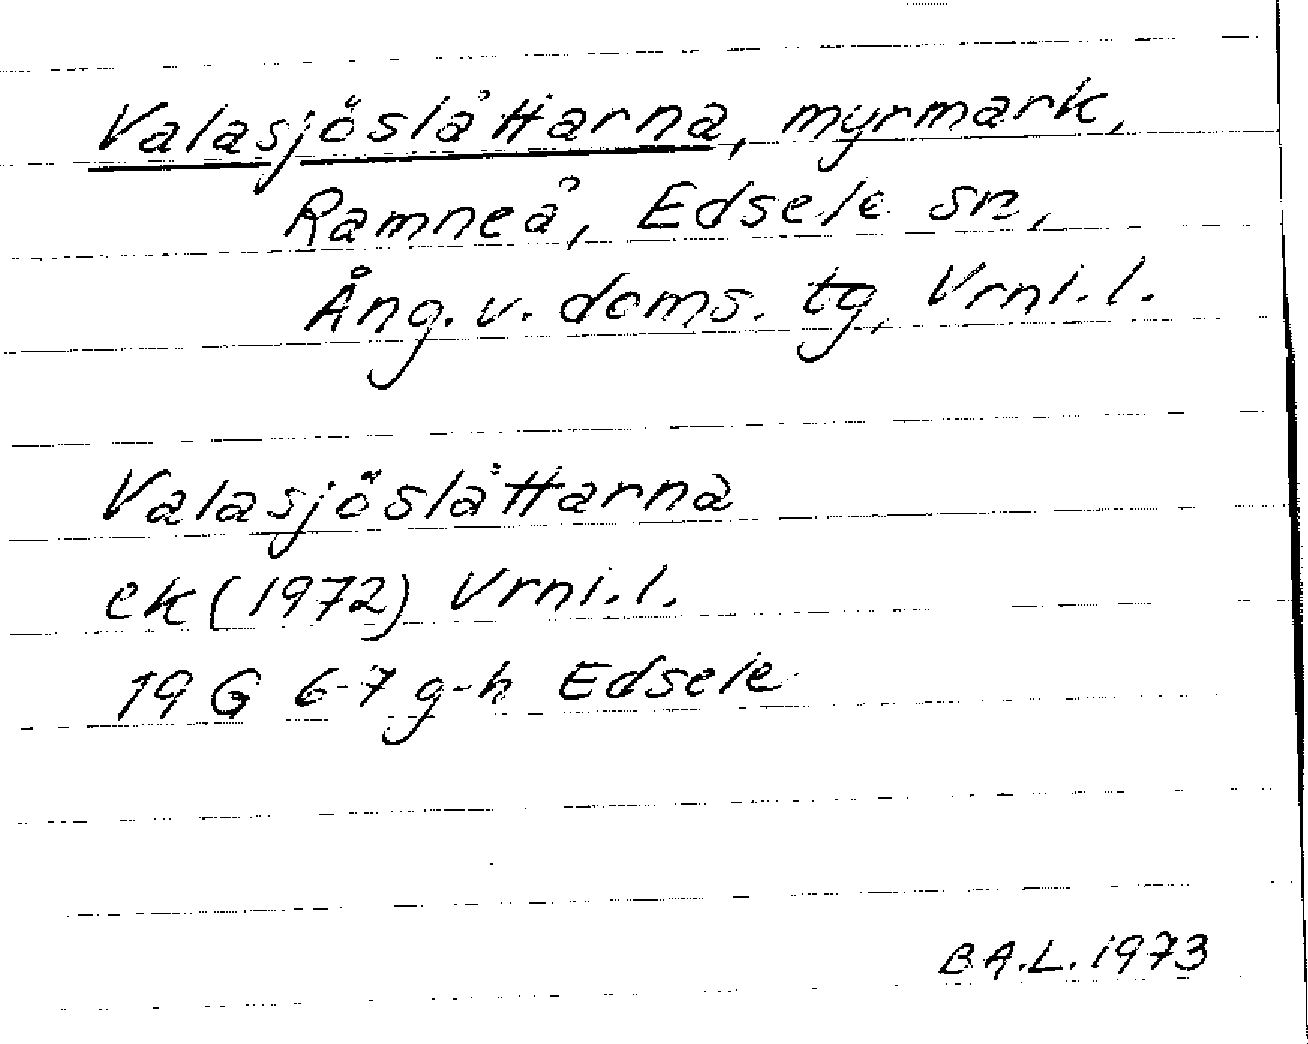 Valasjöslåttarna, myrmark,
Ramneå, Edsele sn,
Ång. v. doms. tg, Vrnl. l.
Valasjöslåttarna
ek (1972) Vrnl. l.
19 G 6-7 g-h Edsele
B.A.L. 1973